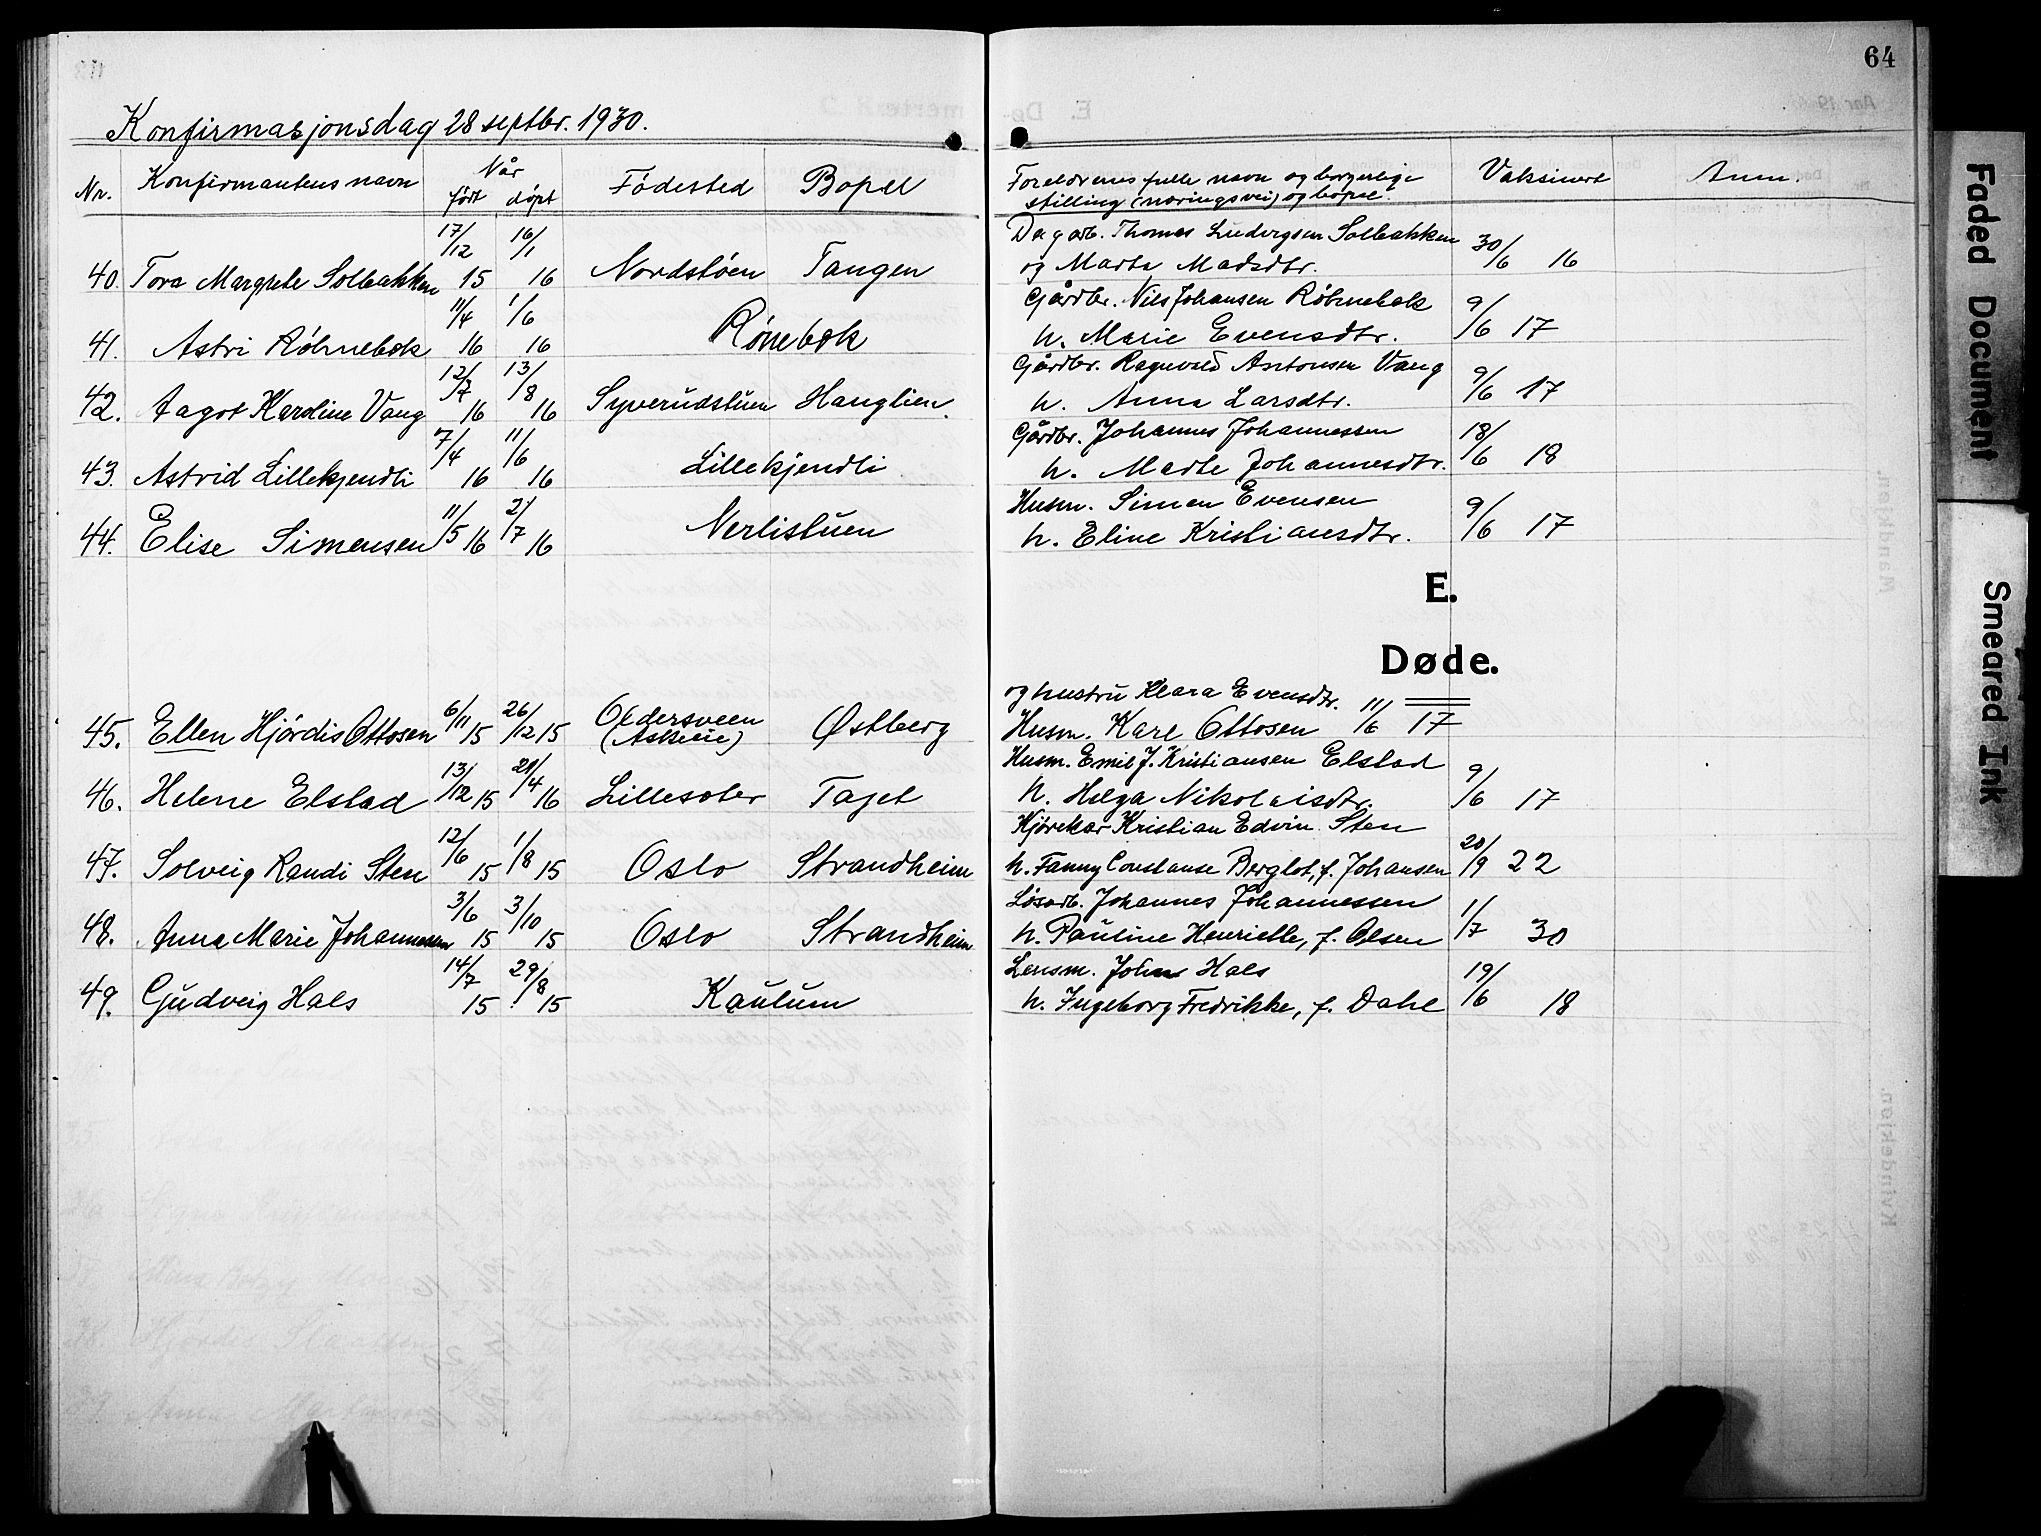 64
Konfirmasjonsdag 28 septbr. 1930.
Nr. Konfirmantens navn Når født døpt Fødested Bopel Foreldrenes fulle navn og borgerlige stilling (næringsvei) og bopel. Vaksinert Anm.
40. Tora Margrete Solbakken 17/12 15 16/1 16 Nordstøen Tangen Dagarb. Thomas Ludvigsen Solbakken og Marta Madsdtr. 30/6 16
41. Astri Röhnebæk 11/4 16 1/6 16 Rönebæk Gårdbr. Nils Johansen Röhnebæk h. Marie Evensdtr. 9/6 17
42. Aagot Karoline Vang 12/7 16 13/8 16 Syverudstuen Hanglien. Gårdbr. Ragnvald Antonsen Vang h. Anna Larsdtr. 9/6 17
43. Astrid Lillekjendli 7/4 16 11/6 16 Lillekjendli Gårdbr. Johannes Johannessen h. Marte Johannesdtr. 18/6 18
44. Elise Simensen 11/5 16 2/7 16 Nerlistuen Husm. Simen Evensen h. Eline Kristiansdtr. 9/6 17
E.
Døde.
og hustru Klara Evensdtr.
45. Ellen Hjördis Ottosen 6/11 15 26/12 15 Oldersveen Østberg Husm. Karl Ottosen 11/6 17
46. Helene Elstad 13/12 15 21/4 16 Lillesæter Tajet Husm. Emil J. Kristiansen Elstad h. Helga Nikolaisdtr. 9/6 17
47. Solveig Randi Sten 12/6 15 1/8 15 Oslo Strandheim Kjörekar Kristian Edvin Sten h. Fanny Constanse Berglot, f. Johansen 20/9 22
48. Anna Marie Johannessen 3/6 15 3/10 15 Oslo Strandheim Løsarb. Johannes Johannessen h. Pauline Henriette, f. Olsen 1/7 30
49. Gudveig Hals 14/7 15 29/8 15 Kaulum Lensm. Johs Hals h. Ingeborg Fredrikke, f. Dahl 19/6 18
Faded Document
Smeared Ink